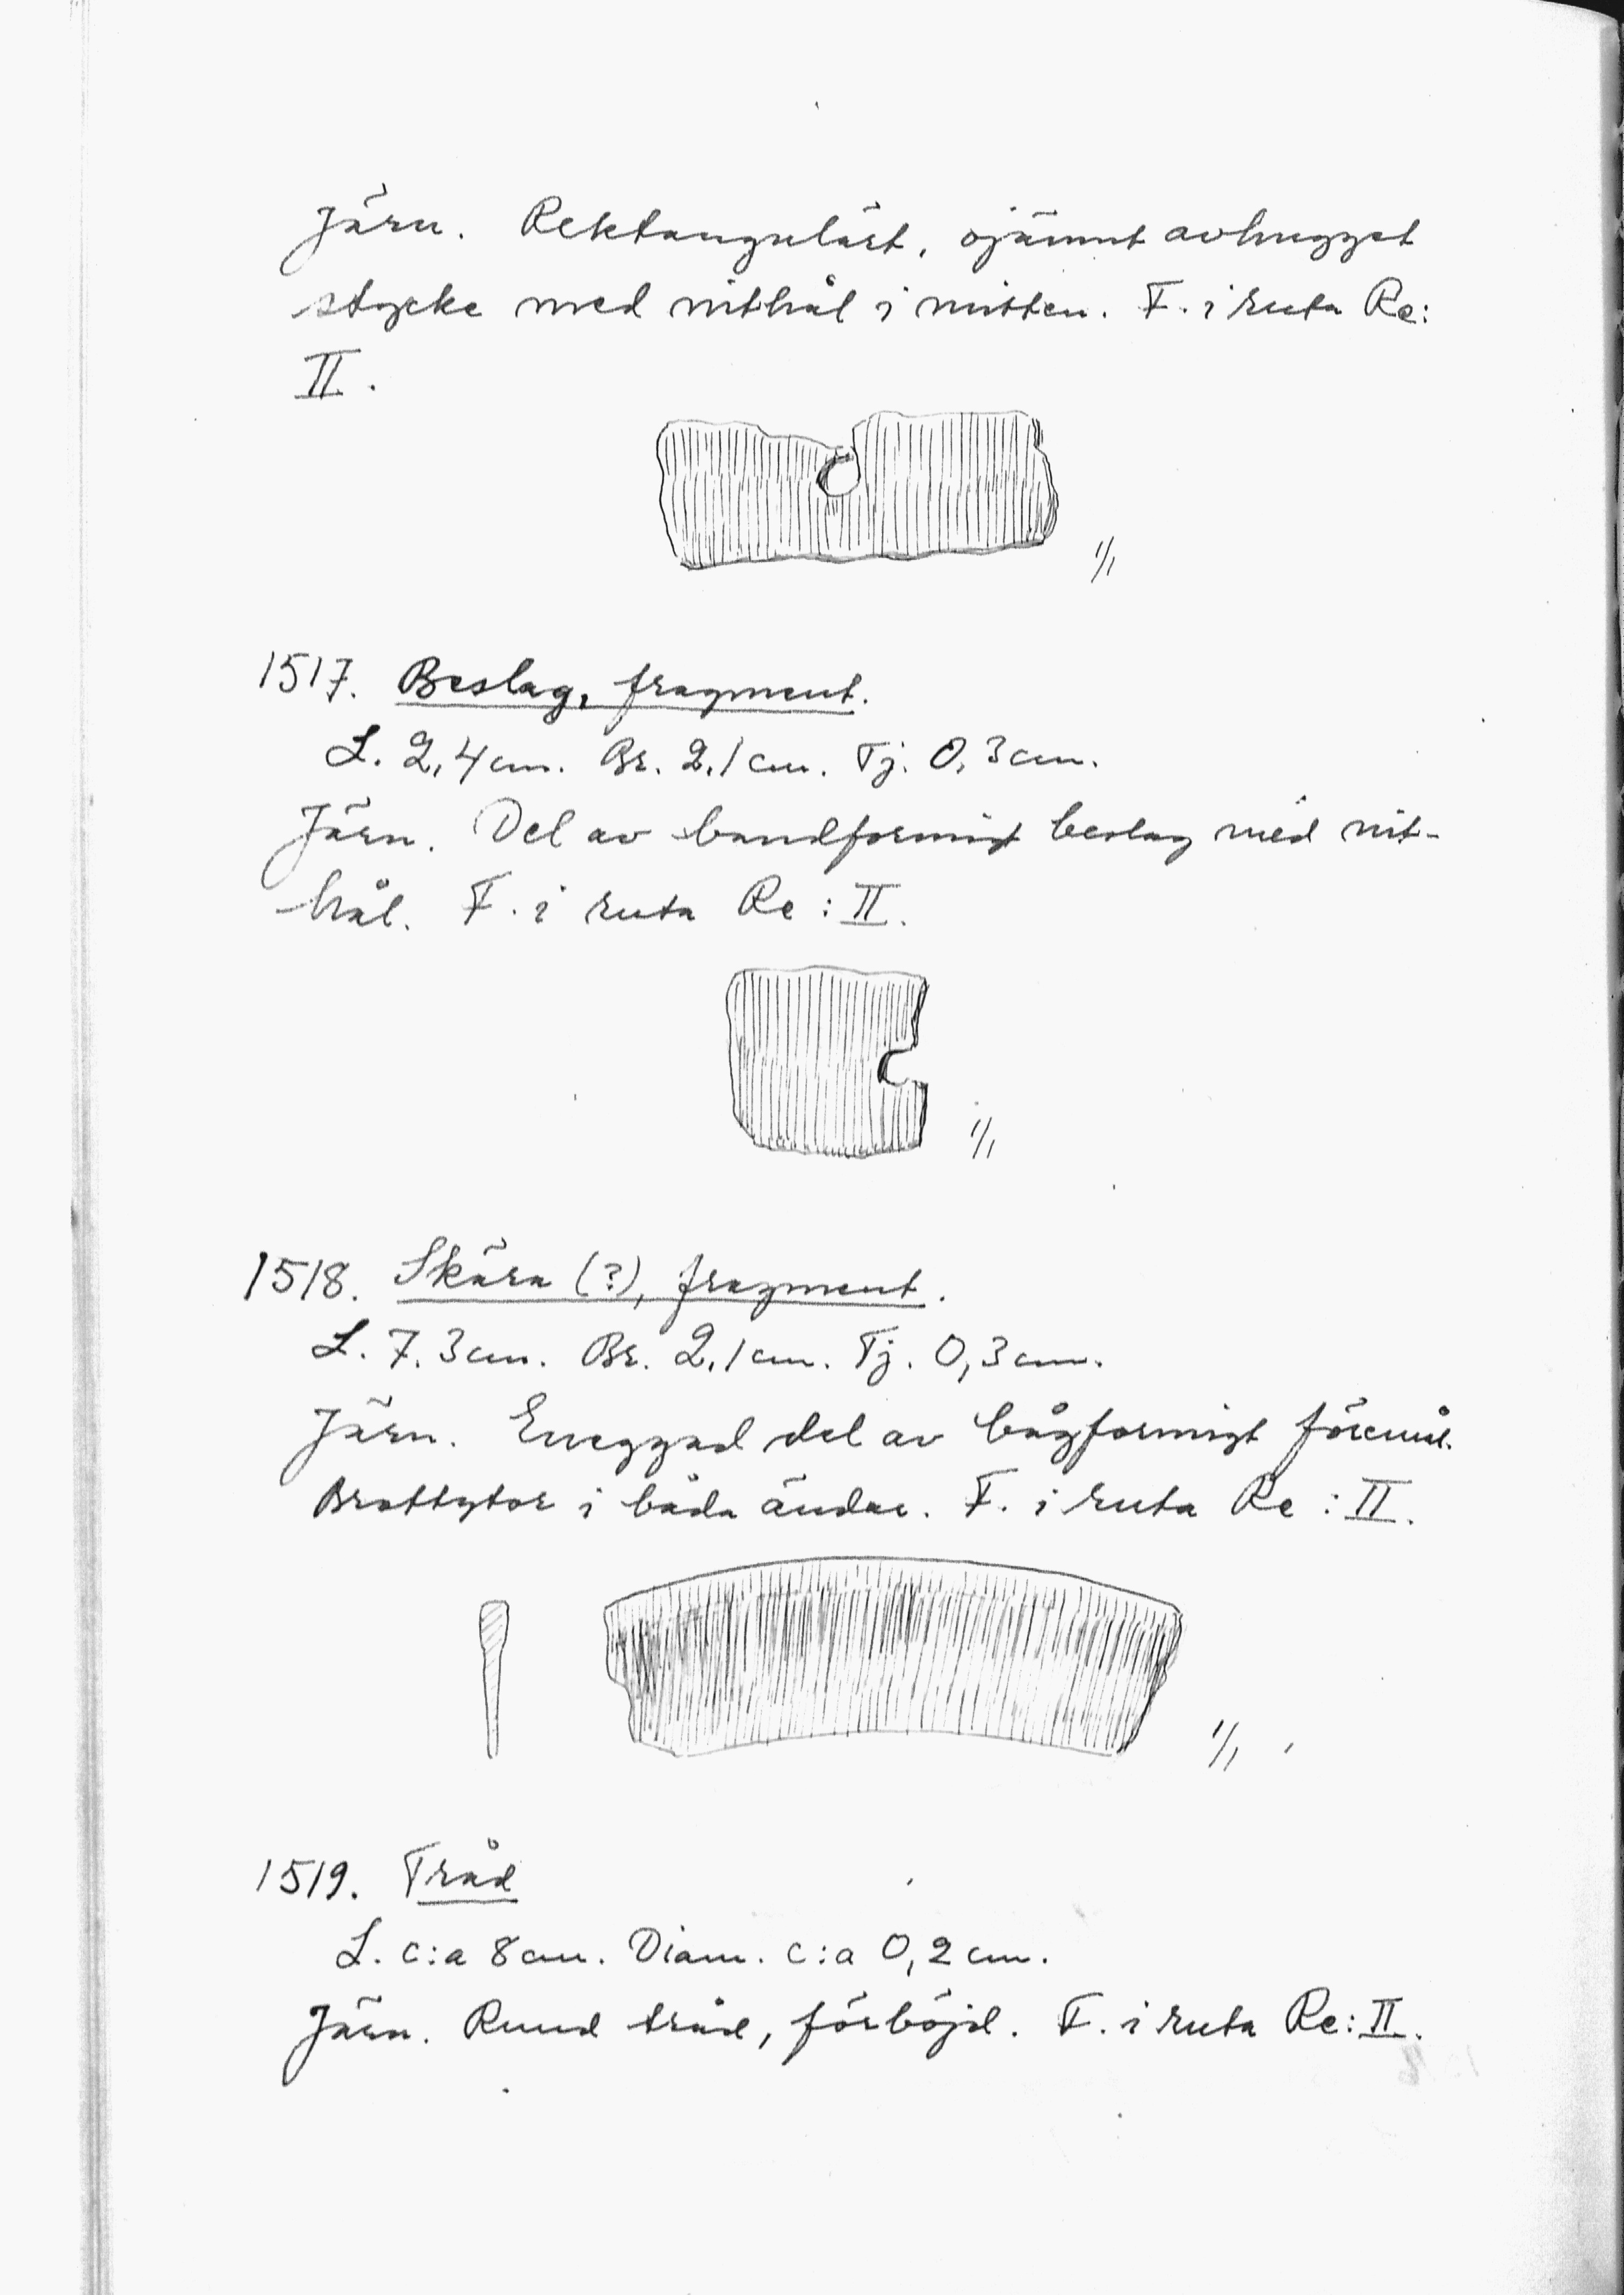 Järn. Rektangulärt, ojämnt avhugget
stycke med nithål i mitten. F. i ruta Re:
II.
1/1
1517. Beslag, fragment.
L. 2,4 cm. Br. 2,1 cm. Tj. 0,3 cm.
Järn. Del av bandformigt beslag med nit-
hål. F. i ruta Re: II.
1/1
1518. Skära (?), fragment.
L. 7,3 cm. Br. 2,1 cm. Tj. 0,3 cm.
Järn. Eneggad del av bågformigt föremål.
Brottytor i båda ändar. F. i ruta Re: II.
1/1
1519. Tråd
L. c:a 8 cm. Diam. c:a 0,2 cm.
Järn. Rund tråd, förböjd. F. i ruta Re: II.